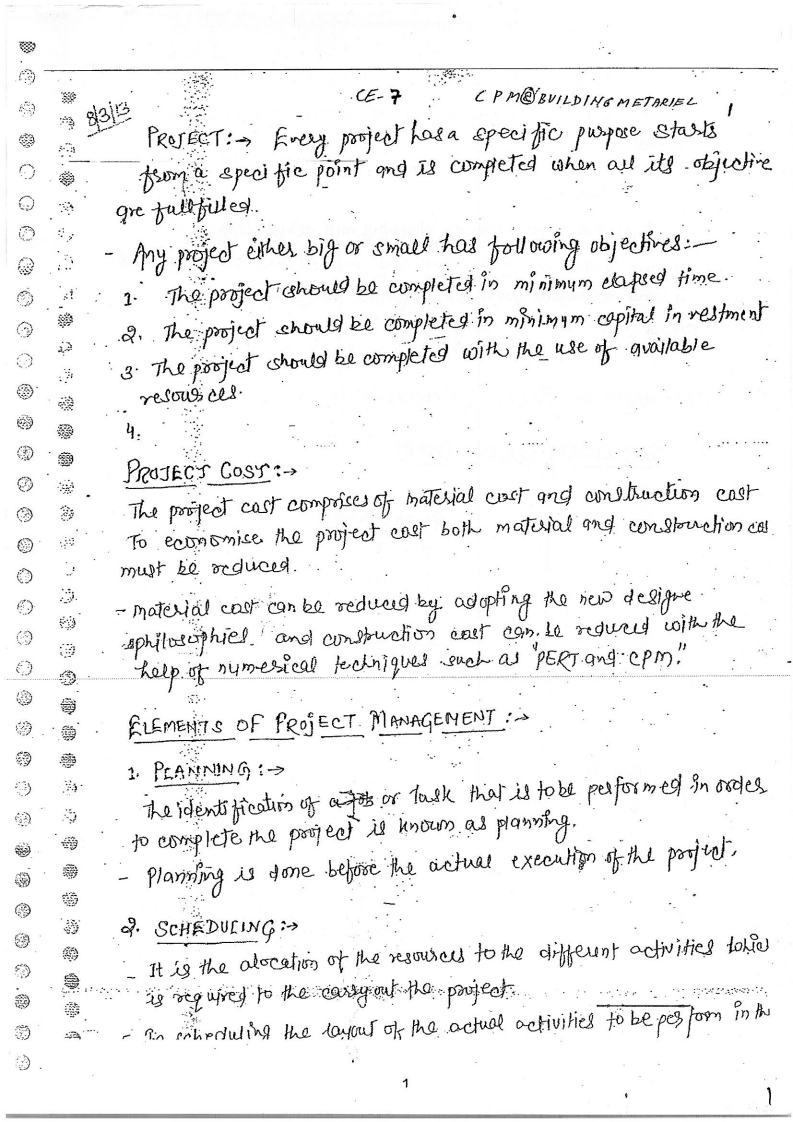 8/3/13
CE-7 CPM@BUILDING METARIEL 1
PROJECT:→ Every project has a specific purpose starts
from a specific point and is completed when all its objective
are fullfilled.
- Any project either big or small has following objectives:—
1. The project should be completed in minimum elapsed time.
2. The project should be completed in minimum capital investment
3. The project should be completed with the use of available
resources.
4.
PROJECT COST:→
The project cost comprises of material cost and construction cost
To economise the project cost both material and construction cos
must be reduced.
- material cost can be reduced by adopting the new designe
sphilosophies and construction cost can be reduced with the
help of numerical techniques such as "PERT and CPM."
ELEMENTS OF PROJECT MANAGEMENT:→
1. PLANNING:→
The identification of a job or task that is to be performed in order
to complete the project is known as planning.
- Planning is done before the actual execution of the project.
2. SCHEDULING:→
- It is the alocation of the resources to the different activities
is required to the carryout the project.
- In scheduling the layout of the actual activities to be perform in th
1
1